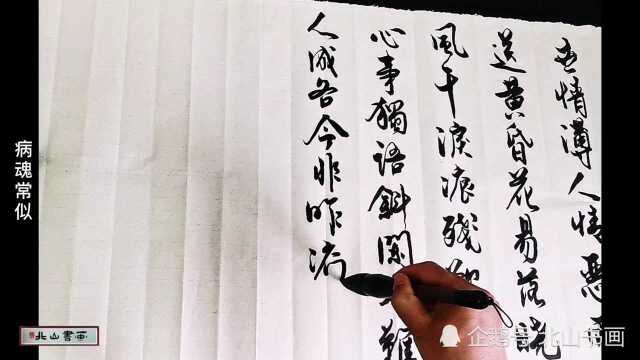 世情薄人情惡
送黄昏花易落曉
風干淚痕殘
心事獨語斜闌難
人成各今非昨
病魂常似
北山書画
企鹅号 北山书画